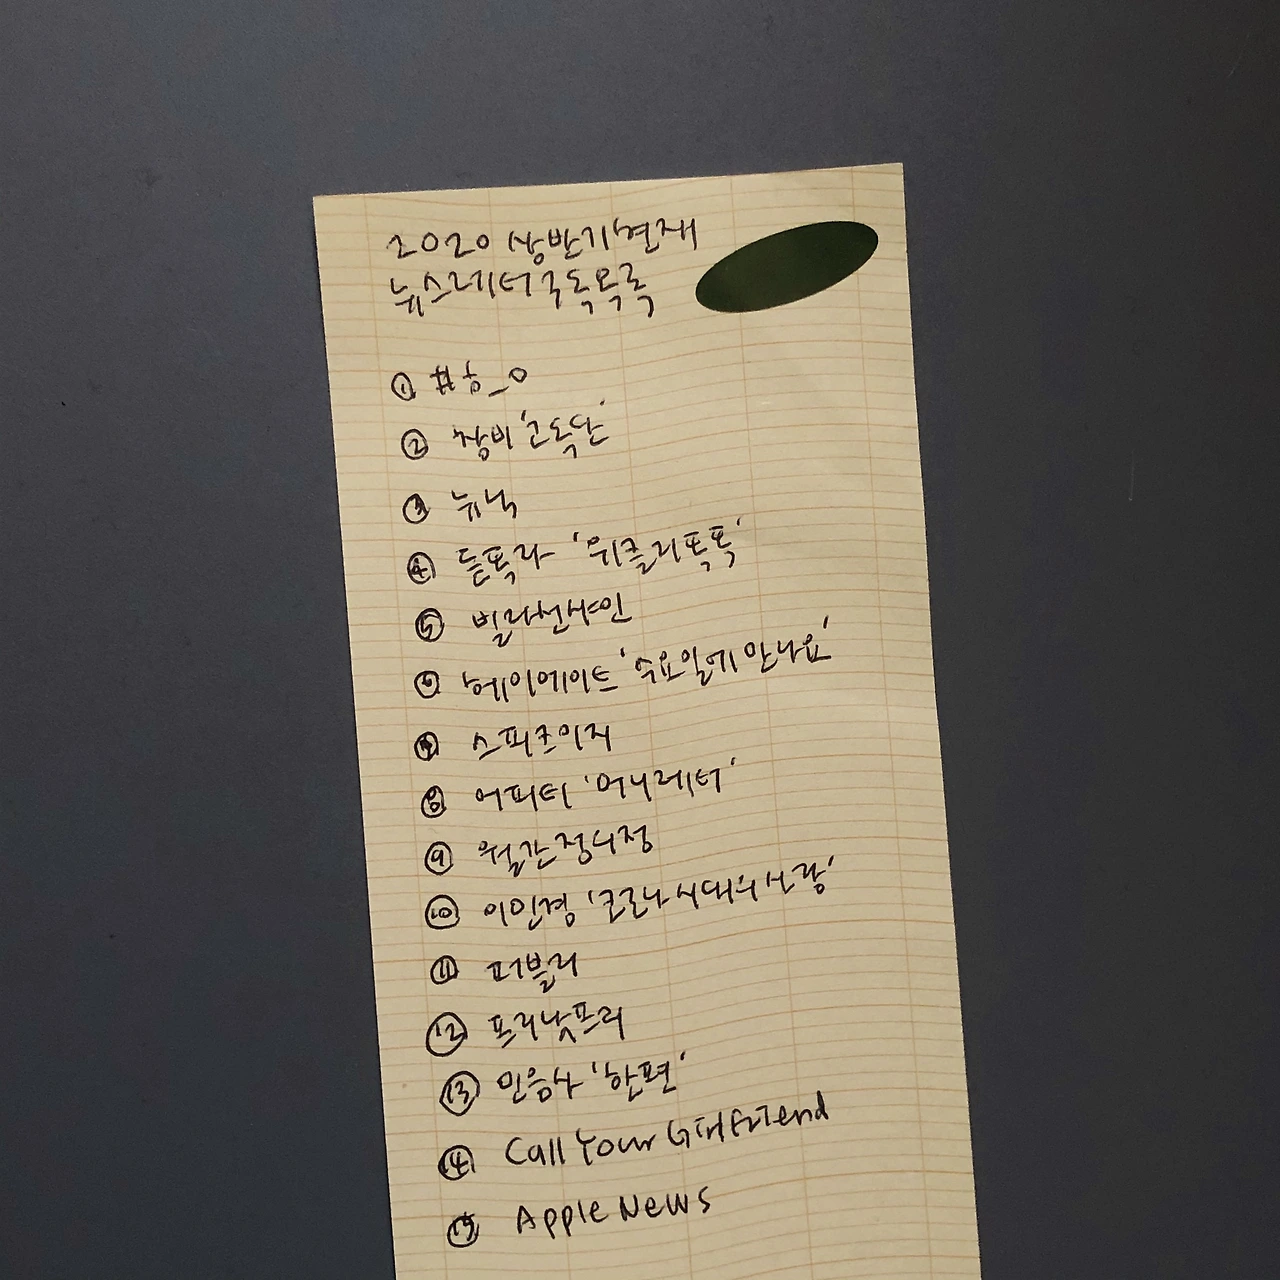 2020 상반기 현재
뉴스레터 구독목록
① #ㅎ_ㅇ
② 창비 '고독단'
③ 뉴닉
④ 듣똑라 '위클리똑똑'
⑤ 빌라선샤인
⑥ 헤이메이트 '수요일에 만나요'
⑦ 스피크이지
⑧ 어피티 '머니레터'
⑨ 월간정니정
⑩ 이민경 '코로나 시대의 사랑'
⑪ 퍼블리
⑫ 프리낫프리
⑬ 민음사 '한편'
⑭ Call Your Girlfriend
⑮ Apple News